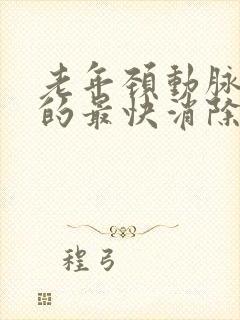 老年頚動脉
的最快消除
程弓